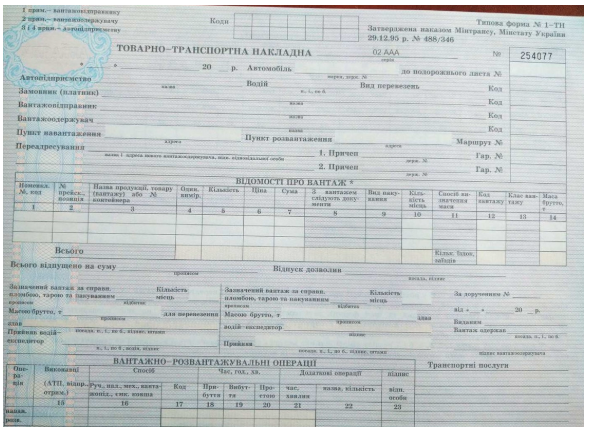 1 прим.– вантажовідправнику
2 прим.– вантажоодержувачу
3 і 4 прим.– автопідприємству
Коди
Типова форма № 1–ТН
Затверджена наказом Мінтрансу, Мінстату України
29.12.95 р. № 488/346
ТОВАРНО–ТРАНСПОРТНА НАКЛАДНА
02 ААА
серія
№ 254077
" " 20 р. Автомобіль до подорожнього листа №
марка, держ. №
Автопідприємство Водій Вид перевезень Код
назва п., і., по б.
Замовник (платник) Код
назва
Вантажовідправник Код
назва
Вантажоодержувач Код
назва
Пункт навантаження Пункт розвантаження Маршрут №
адреса адреса
Переадресування 1. Причеп Гар. №
назва і адреса нового вантажоодержувача, підп. відповідальної особи держ. №
2. Причеп Гар. №
держ. №
ВІДОМОСТІ ПРО ВАНТАЖ *
Номенкл. №, код
№ прейск., позиція
Назва продукції, товару (вантажу) або № контейнера
Один. вимір.
Кількість
Ціна
Сума
З вантажем слідують документи
Вид пакування
Кількість місць
Спосіб визначення маси
Код вантажу
Клас вантажу
Маса брутто, т
1 2 3 4 5 6 7 8 9 10 11 12 13 14
Всього
Кільк. їздок, заїздів
Всього відпущено на суму Відпуск дозволив
прописом посада, підпис
Зазначений вантаж за справн. пломбою, тарою та пакуванням Кількість місць
прописом відбиток
Масою брутто, т для перевезення
здав
посада, п., і., по б., підпис, штамп
Прийняв водій–експедитор
п., і., по б., підпис, штамп
Зазначений вантаж за справн. пломбою, тарою та пакуванням Кількість місць
відбиток прописом
Масою брутто, т здав
водій–експедитор
Прийняв
посада, п., і., по б., підпис, штамп
За дорученням №
від « » 20 р.
Виданим
Вантаж одержав
посада, п., і., по б.
підпис вантажоодержувача
ВАНТАЖНО–РОЗВАНТАЖУВАЛЬНІ ОПЕРАЦІЇ
Транспортні послуги
Операція
Виконавці (АТП, відпр., отрим.)
Спосіб
Час, год., хв.
Додаткові операції
підпис відп. особи
Руч., нал., мех., ванта-
Код
Прибуття
Вибуття
Простою
час, хвилин
назва, кількість
15 16 17 18 19 20 21 22 23
наван.
розв.